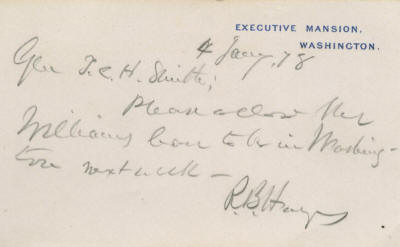 EXECUTIVE MANSION,
WASHINGTON.
4 Jany, 78
Gen T. C. H. Smith;
Please allow
Williams to be in Washing-
ton next week —
R. B. Hayes